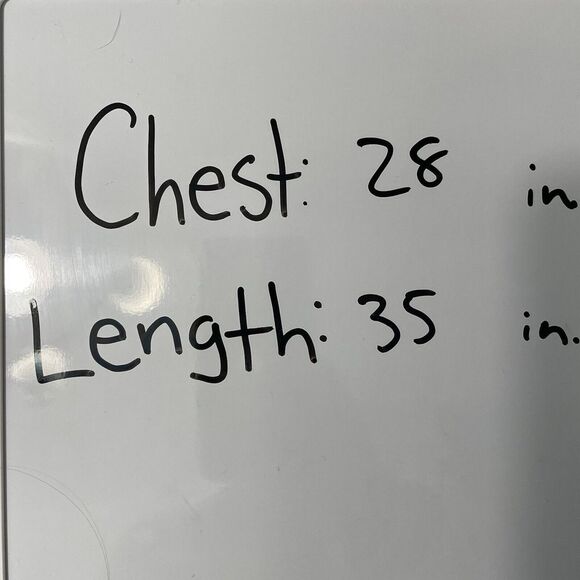 Chest: 28 in.
Length: 35 in.